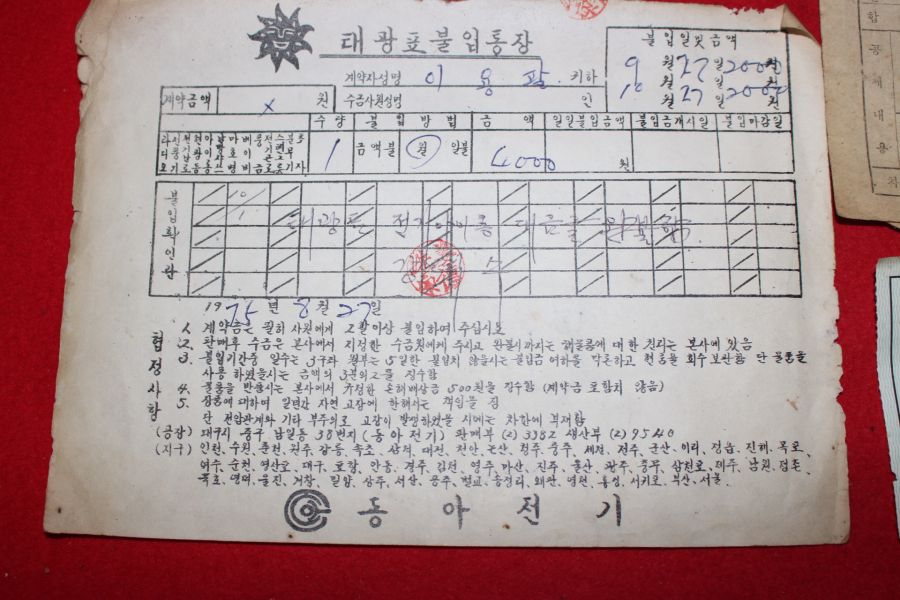 태광표불입통장
불입일및금액
9월 27일 2000원
월 일 원
10월 27일 2000원
계약자성명 이 용 팔 귀하
수금사원성명 인
계약금액 × 원
수 량 불 입 방 법 금 액 일일불입금액 불입금개시일 불입마감일
1 금액불 월 일불 4000 원
불입확인란
태광표 전자 대금을
1975년 8월 27일
협정사항
1. 계약금은 필히 사원에게 2할이상 불입하여 주십시요
2. 판매후 수금은 본사에서 지정한 수금원에게 주시고 완불시까지는 해물품에 대한 권리는 본사에 있음
3. 불입기간중 일수는 3구좌 월부는 5일한 불입치 않을시는 불입금 여하을 막론하고 현품을 회수보관함 단 물품을
사용 하였을시는 금액의 3분의2를 징수함
4. 물품을 반환시는 본사에서 규정한 손해배상금 500원을 징수함 (계약금 포함치 않음)
5. 상품에 대하여 일년간 자연 고장에 한해서는 책임을 짐
단 전압관계와 기타 부주의로 고장이 발생하였을 시에는 차한에 부재함
(공장) 대구시 중구 남일동 38번지 (동아전기) 판매부 (2) 3382 생산부 (2) 9540
(지구) 인천, 수원, 춘천, 원주, 강릉, 속초, 삼척, 대전, 천안, 논산, 청주, 충주, 제천, 전주, 군산, 이리, 정읍, 진해, 목포,
여수, 순천, 영산포, 대구, 포항, 안동, 경주, 김천, 영주, 마산, 진주, 울산, 광주, 충무, 삼천포, 제주, 남원, 점촌
묵호, 영덕, 울진, 거창, 밀양, 상주, 서산, 공주, 벌교, 송정리, 왜관, 영천, 홍성, 서귀포, 부산, 서울
동 아 전 기
함
공
제
내
용